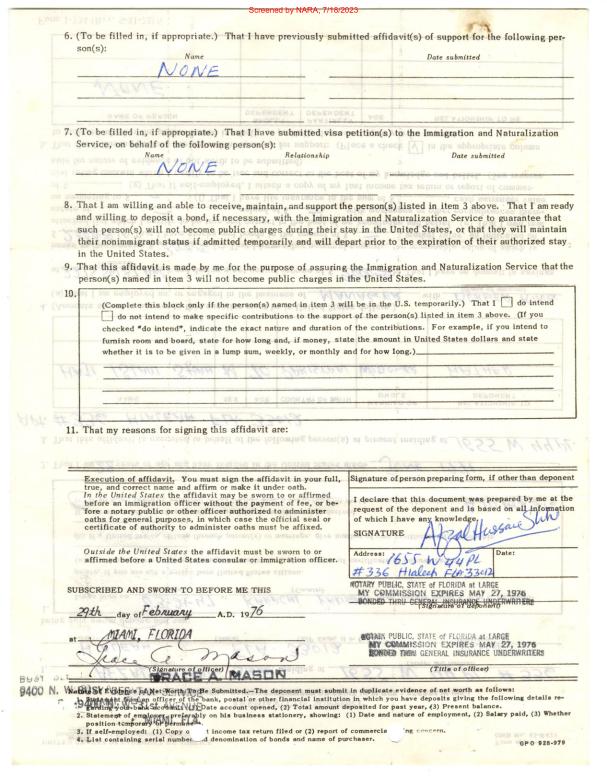 Screened by NARA, 7/18/2023
6. (To be filled in, if appropriate.) That I have previously submitted affidavit(s) of support for the following per-
son(s):
Name Date submitted
NONE
7. (To be filled in, if appropriate.) That I have submitted visa petition(s) to the Immigration and Naturalization
Service, on behalf of the following person(s):
Name Relationship Date submitted
NONE
8. That I am willing and able to receive, maintain, and support the person(s) listed in item 3 above. That I am ready
and willing to deposit a bond, if necessary, with the Immigration and Naturalization Service to guarantee that
such person(s) will not become public charges during their stay in the United States, or that they will maintain
their nonimmigrant status if admitted temporarily and will depart prior to the expiration of their authorized stay
in the United States.
9. That this affidavit is made by me for the purpose of assuring the Immigration and Naturalization Service that the
person(s) named in item 3 will not become public charges in the United States.
10.
(Complete this block only if the person(s) named in item 3 will be in the U.S. temporarily.) That I do intend
do not intend to make specific contributions to the support of the person(s) listed in item 3 above. (If you
checked "do intend", indicate the exact nature and duration of the contributions. For example, if you intend to
furnish room and board, state for how long and, if money, state the amount in United States dollars and state
whether it is to be given in a lump sum, weekly, or monthly and for how long.)
11. That my reasons for signing this affidavit are:
Execution of affidavit. You must sign the affidavit in your full,
true, and correct name and affirm or make it under oath.
In the United States the affidavit may be sworn to or affirmed
before an immigration officer without the payment of fee, or be-
fore a notary public or other officer authorized to administer
oaths for general purposes, in which case the official seal or
certificate of authority to administer oaths must be affixed.
Outside the United States the affidavit must be sworn to or
affirmed before a United States consular or immigration officer.
Signature of person preparing form, if other than deponent
I declare that this document was prepared by me at the
request of the deponent and is based on all information
of which I have any knowledge.
SIGNATURE Afzal Hussain
Address: Date:
1655 W 44 PL
#336 Hialeah Fla 33012
SUBSCRIBED AND SWORN TO BEFORE ME THIS
NOTARY PUBLIC, STATE OF FLORIDA AT LARGE
MY COMMISSION EXPIRES MAY 27, 1976
BONDED THRU GENERAL INSURANCE UNDERWRITERS
(Signature of deponent)
29th day of February A.D. 1976
at MIAMI, FLORIDA
NOTARY PUBLIC, STATE OF FLORIDA AT LARGE
MY COMMISSION EXPIRES MAY 27, 1976
BONDED THRU GENERAL INSURANCE UNDERWRITERS
Grace A. Mason
(Signature of officer) (Title of officer)
GRACE A. MASON
9400 N. W.
Evidence of Net Worth To Be Submitted.—The deponent must submit in duplicate evidence of net worth as follows:
officer of the bank, postal or other financial institution in which you have deposits giving the following details re-
account opened, (2) Total amount deposited for past year, (3) Present balance.
2. Statement of employer, preferably on his business stationery, showing: (1) Date and nature of employment, (2) Salary paid, (3) Whether
position temporary or permanent.
3. If self-employed: (1) Copy of income tax return filed or (2) report of commercial concern.
4. List containing serial number and denomination of bonds and name of purchaser.
GPO 928-979